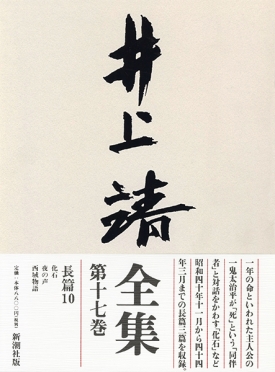 井上靖
全集
第十七巻
一年の命といわれた主人公の
一鬼太治平が、「死」という「同伴
者」と対話をかわす「化石」など
昭和四十年十一月から四十四
年三月までの長篇三篇を収録。
長篇10
化石
夜の声
西域物語
新潮社版